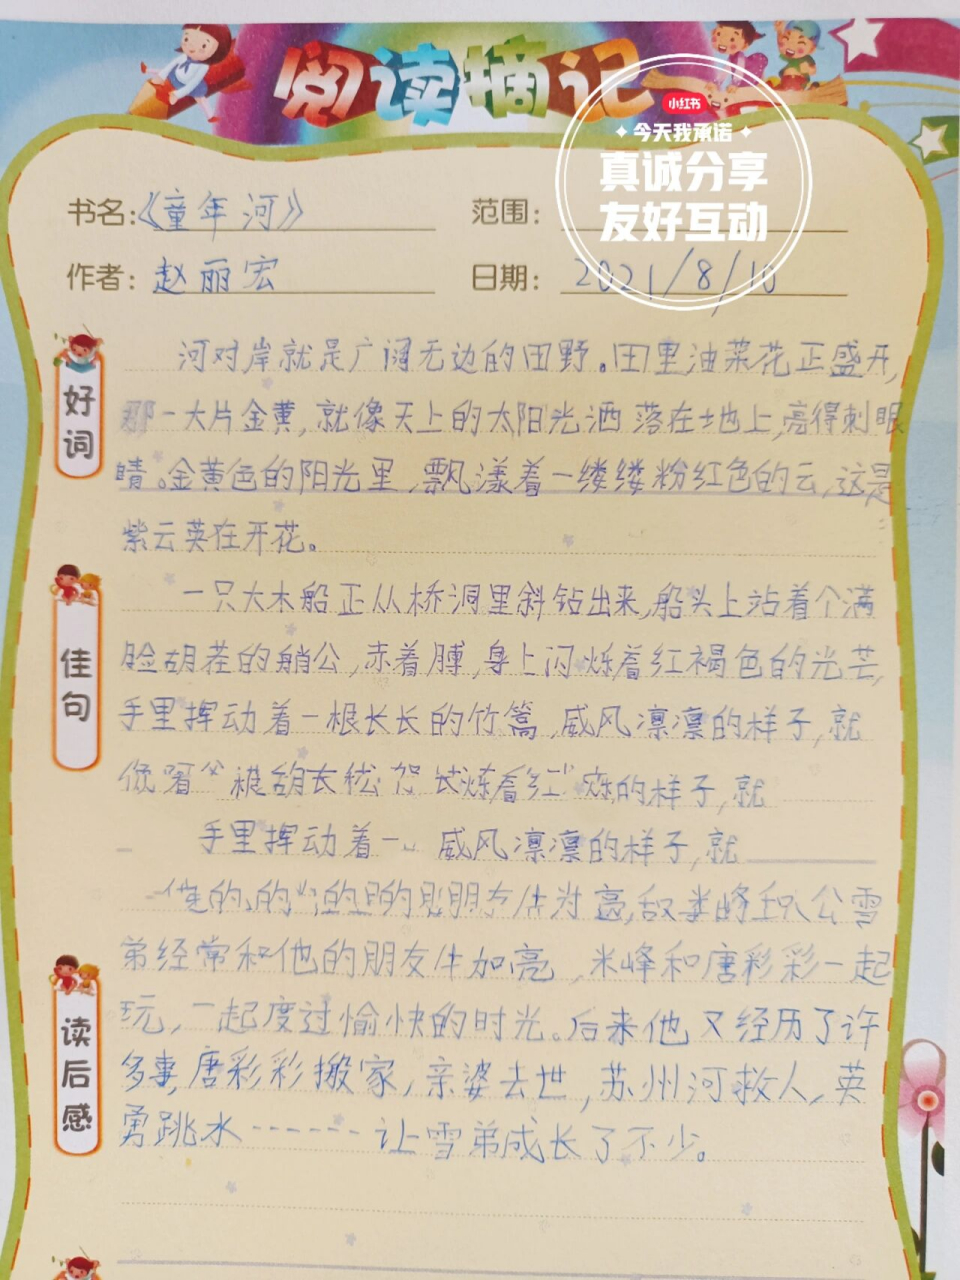 阅读摘记
小红书
今天我承诺
真诚分享
友好互动
书名:《童年河》
范围:
作者:赵丽宏
日期:2021/8/10
好词
河对岸就是广阔无边的田野。田里油菜花正盛开,
那一大片金黄,就像天上的太阳光洒落在土地上,亮得刺眼
睛。金黄色的阳光里,飘漾着一缕缕粉红色的云,这是
紫云英在开花。
佳句
一只大木船正从桥洞里斜钻出来,船头上站着个满
脸胡茬的艄公,赤着膊,身上闪烁着红褐色的光芒,
手里挥动着一根长长的竹篙,威风凛凛的样子,就
的样子,就
手里挥动着一 威风凛凛的样子,就
公雪
弟经常和他的朋友牛加亮,米峰和唐彩彩一起
玩,一起度过愉快的时光。后来他又经历了许
读后感
多事,唐彩彩搬家,亲婆去世,苏州河救人,英
勇跳水------让雪弟成长了不少。